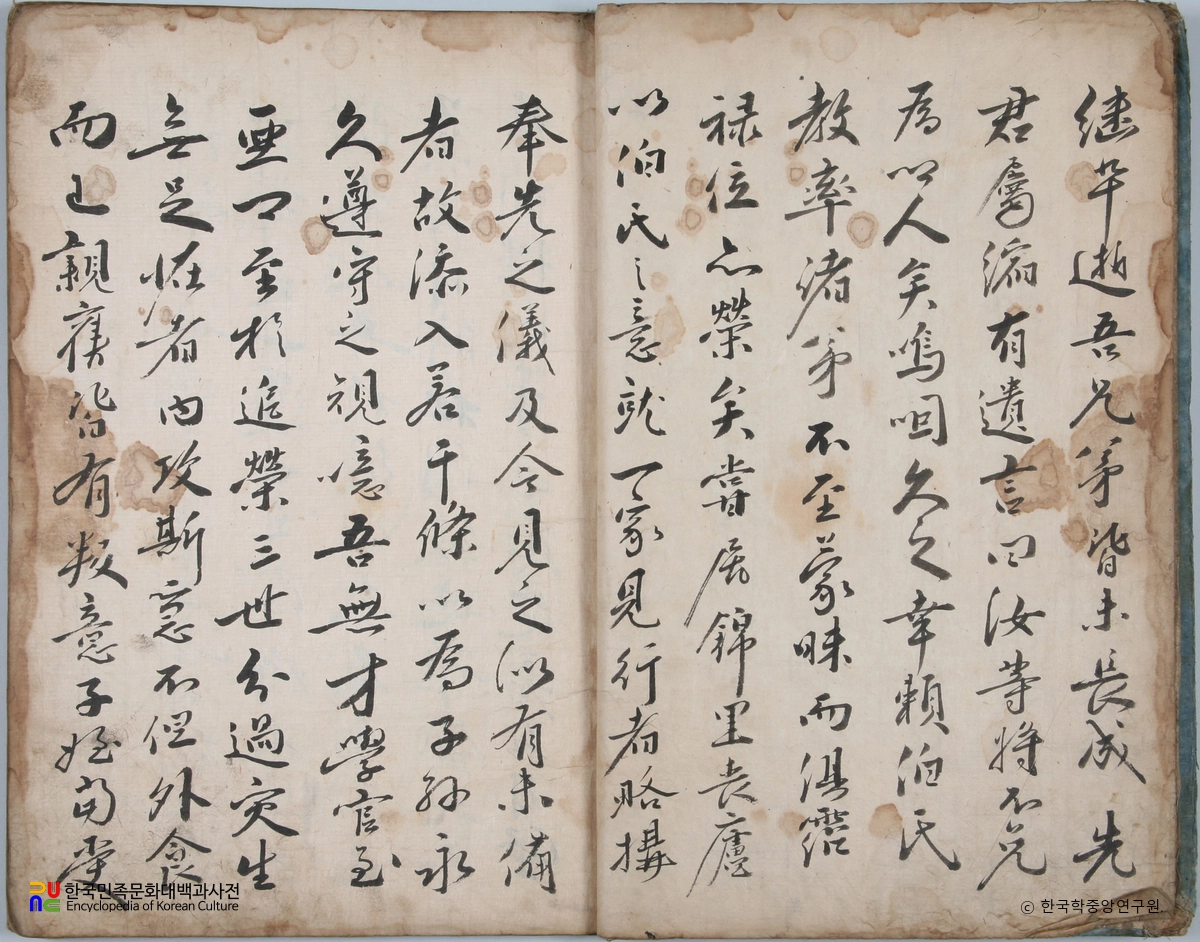 继卒逝吾兄弟皆未長成 先
君屬纊有遺言曰汝等將不免
爲小人矣嗚呼久之幸賴伯氏
教率諸弟不至蒙昧而俱霑
祿位亦榮矣嘗居錦里喪廬
以伯氏之意就一家見行者略搆
奉先之儀及今見之似有未備
者故添入若干條以爲子孫永
久遵守之規噫吾無才學官至
亞卿至於追榮三世分過灾生
無足怪者內攻斯急不但外
而已親舊皆有
意子姪苟
한국민족문화대백과사전
Encyclopedia of Korean Culture
© 한국학중앙연구원.